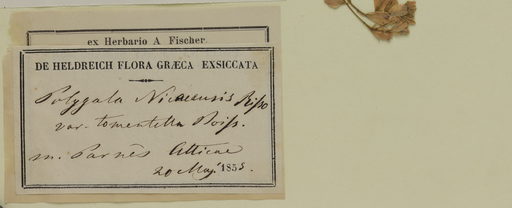 ex Herbario A Fischer
DE HELDREICH FLORA GRÆCA EXSICCATA
Polygala Nicaeensis Risso
var. tomentella Boiss.
m. Parnès Atticae
20 Maj. 1855.